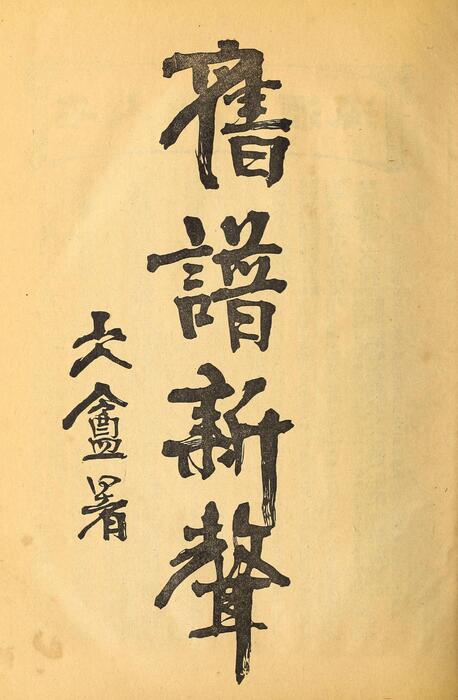 舊譜新聲
盦署